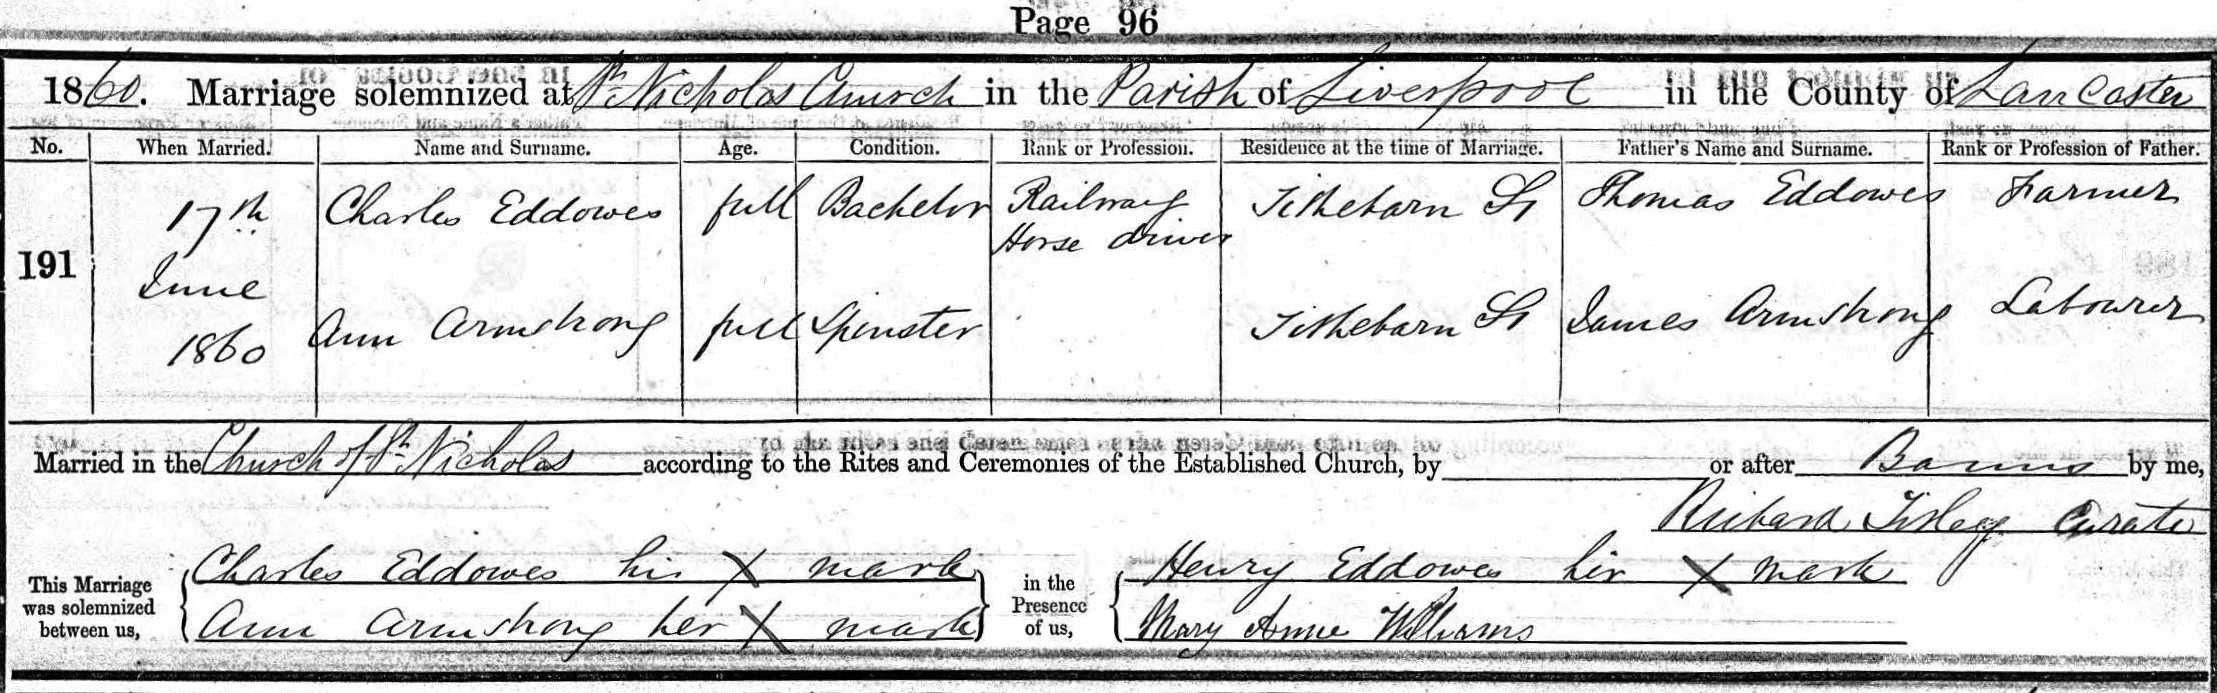 Page 96
1860. Marriage solemnized at St. Nicholas Church in the Parish of Liverpool in the County of Lancaster
No. When Married. Name and Surname. Age. Condition. Rank or Profession. Residence at the time of Marriage. Father's Name and Surname. Rank or Profession of Father.
191 17th June 1860
Charles Eddowes full Bachelor Railway Horse driver Tithebarn St Thomas Eddowes Farmer
Ann Armstrong full Spinster Tithebarn St James Armstrong Labourer
Married in the Church of St. Nicholas according to the Rites and Ceremonies of the Established Church, by or after Banns by me,
Richard Curate
This Marriage was solemnized between us,
Charles Eddowes his X mark
Ann Armstrong her X mark
in the Presence of us,
Henry Eddowes his X mark
Mary Anne Williams